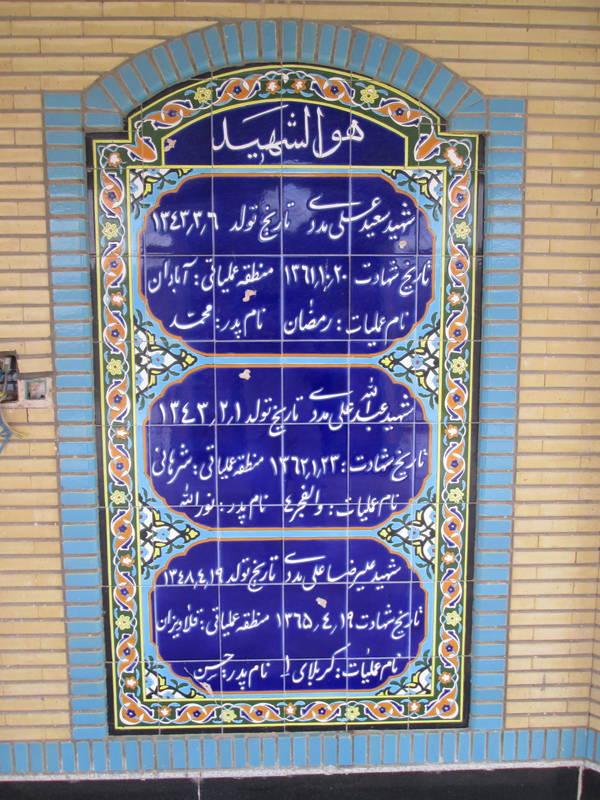 هو الشهید
شهید سعید علی مددی تاریخ تولد ۱۳۴۳٫۳٫۶
تاریخ شهادت ۱۳۶۱٫۱۰٫۲۰ منطقه عملیاتی: آبادان
نام عملیات: رمضان نام پدر: محمد
شهید عبدالله علی مددی تاریخ تولد ۱۳۴۳٫۲٫۱
تاریخ شهادت: ۱۳۶۲٫۱٫۲۳ منطقه عملیاتی: شرهانی
نام عملیات: والفجر ٤ نام پدر: نورالله
شهید علیرضا علی مددی تاریخ تولد ۱۳۴۸٫۴٫۱۹
تاریخ شهادت ۱۳۶۵٫۴٫۱۹ منطقه عملیاتی: قلاویزان
نام عملیات: کربلای ۱ نام پدر: حسین